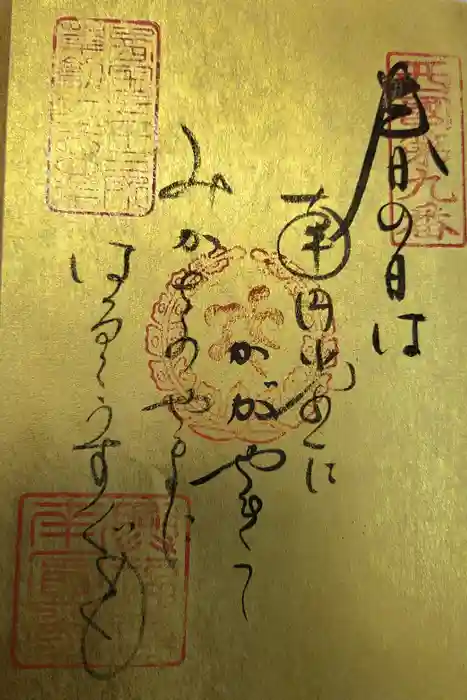 西國第九番
春の日は
南円堂に
かがやきて
みかさのやまに
はるゝうすぐも